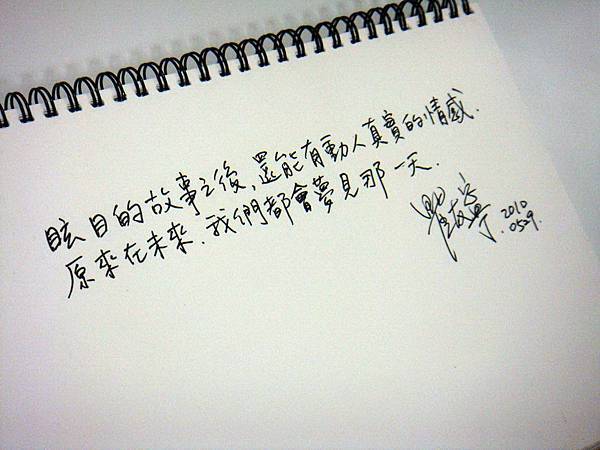 眩目的故事之後,還能有動人真實的情感.
原來在未來.我們都會夢見那一天.
2010
0529.